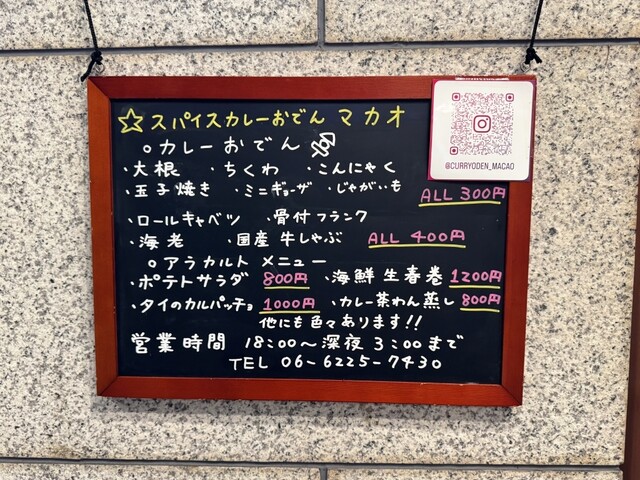 ☆スパイスカレーおでん マカオ
@CURRYODEN_MACAO
○カレーおでん
・大根 ・ちくわ ・こんにゃく
・玉子焼き ・ミニギョーザ ・じゃがいも
ALL 300円
・ロールキャベツ ・骨付フランク
・海老 ・国産牛しゃぶ ALL 400円
○アラカルト メニュー
・ポテトサラダ 800円 ・海鮮生春巻 1200円
・タイのカルパッチョ 1000円 ・カレー茶わん蒸し 800円
他にも色々あります!!
営業時間 18:00〜深夜3:00まで
TEL 06-6225-7430